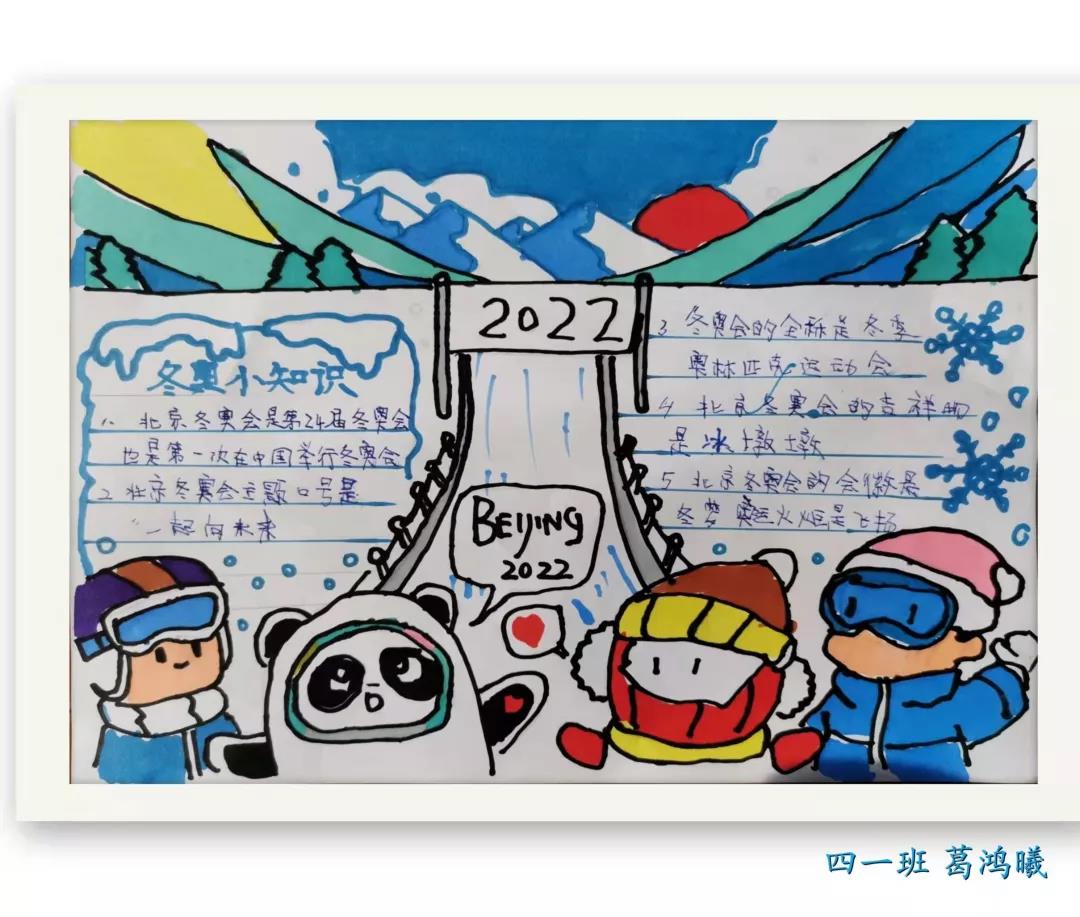 2022
冬奥小知识
1、北京冬奥会是第24届冬奥会
也是第一次在中国举行冬奥会
2、北京冬奥会主题口号是
“一起向未来
3、冬奥会的全称是冬季
奥林匹克运动会
4、北京冬奥会的吉祥物
是冰墩墩
5、北京冬奥会的会徽是
冬梦 火炬是飞扬
BEIJING
2022
四一班 葛鸿曦